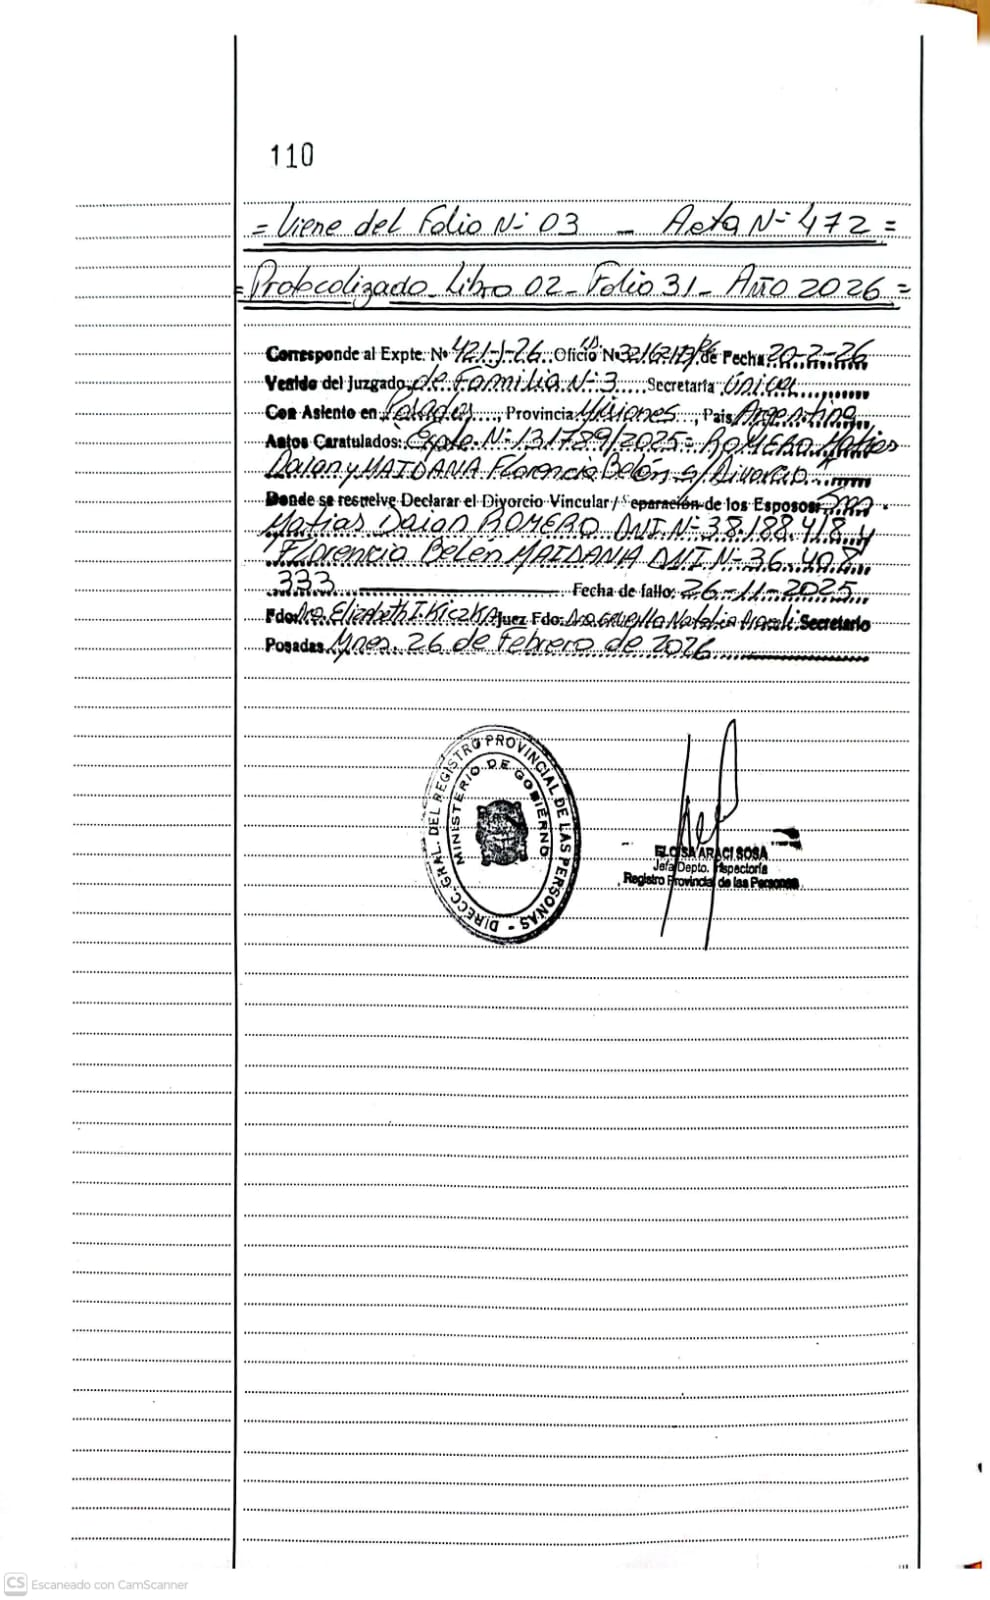 110
= Viene del Folio Nº 03 _ Acta Nº 472 =
= Protocolizado Libro 02 _ Folio 31 _ Año 2026 =
Corresponde al Expte. Nº 421-J-26 Oficio Nº de Fecha 20-2-26
Venido del Juzgado de Familia Nº 3 Secretaría Única
Con Asiento en Posadas, Provincia Misiones, Pais Argentina
Autos Caratulados: Expte. Nº 131789/2025 = ROMERO Matias
Daian y MAIDANA Florencia Belén s/ Divorcio
Donde se resuelve Declarar el Divorcio Vincular/ Separación de los Esposos
Matias Daian ROMERO DNI Nº 38.188.418 y
Florencia Belén MAIDANA DNI Nº 36.408.
333 Fecha de fallo: 26-11-2025
Fdo: Dra. Elizabeth I. KICZKA Juez Fdo: Dra Natalia Araceli Secretario
Posadas Mnes. 26 de Febrero de 2026
DIRECC. GRAL. DEL REGISTRO PROVINCIAL DE LAS PERSONAS -
MINISTERIO DE GOBIERNO
ELOISA ARACI SOSA
Jefa Depto. Inspectoría
Registro Provincial de las Personas
CS Escaneado con CamScanner